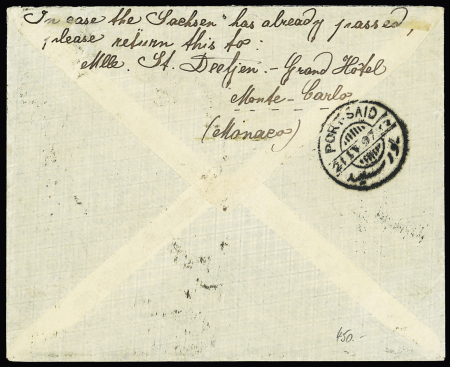 In case the "Sachsen" has already passed,
please return this to:
Mlle. St. Deetjen. - Grand Hôtel
Monte-Carlo
(Monaco)
PORT-SAID
21 IV 97
450.-